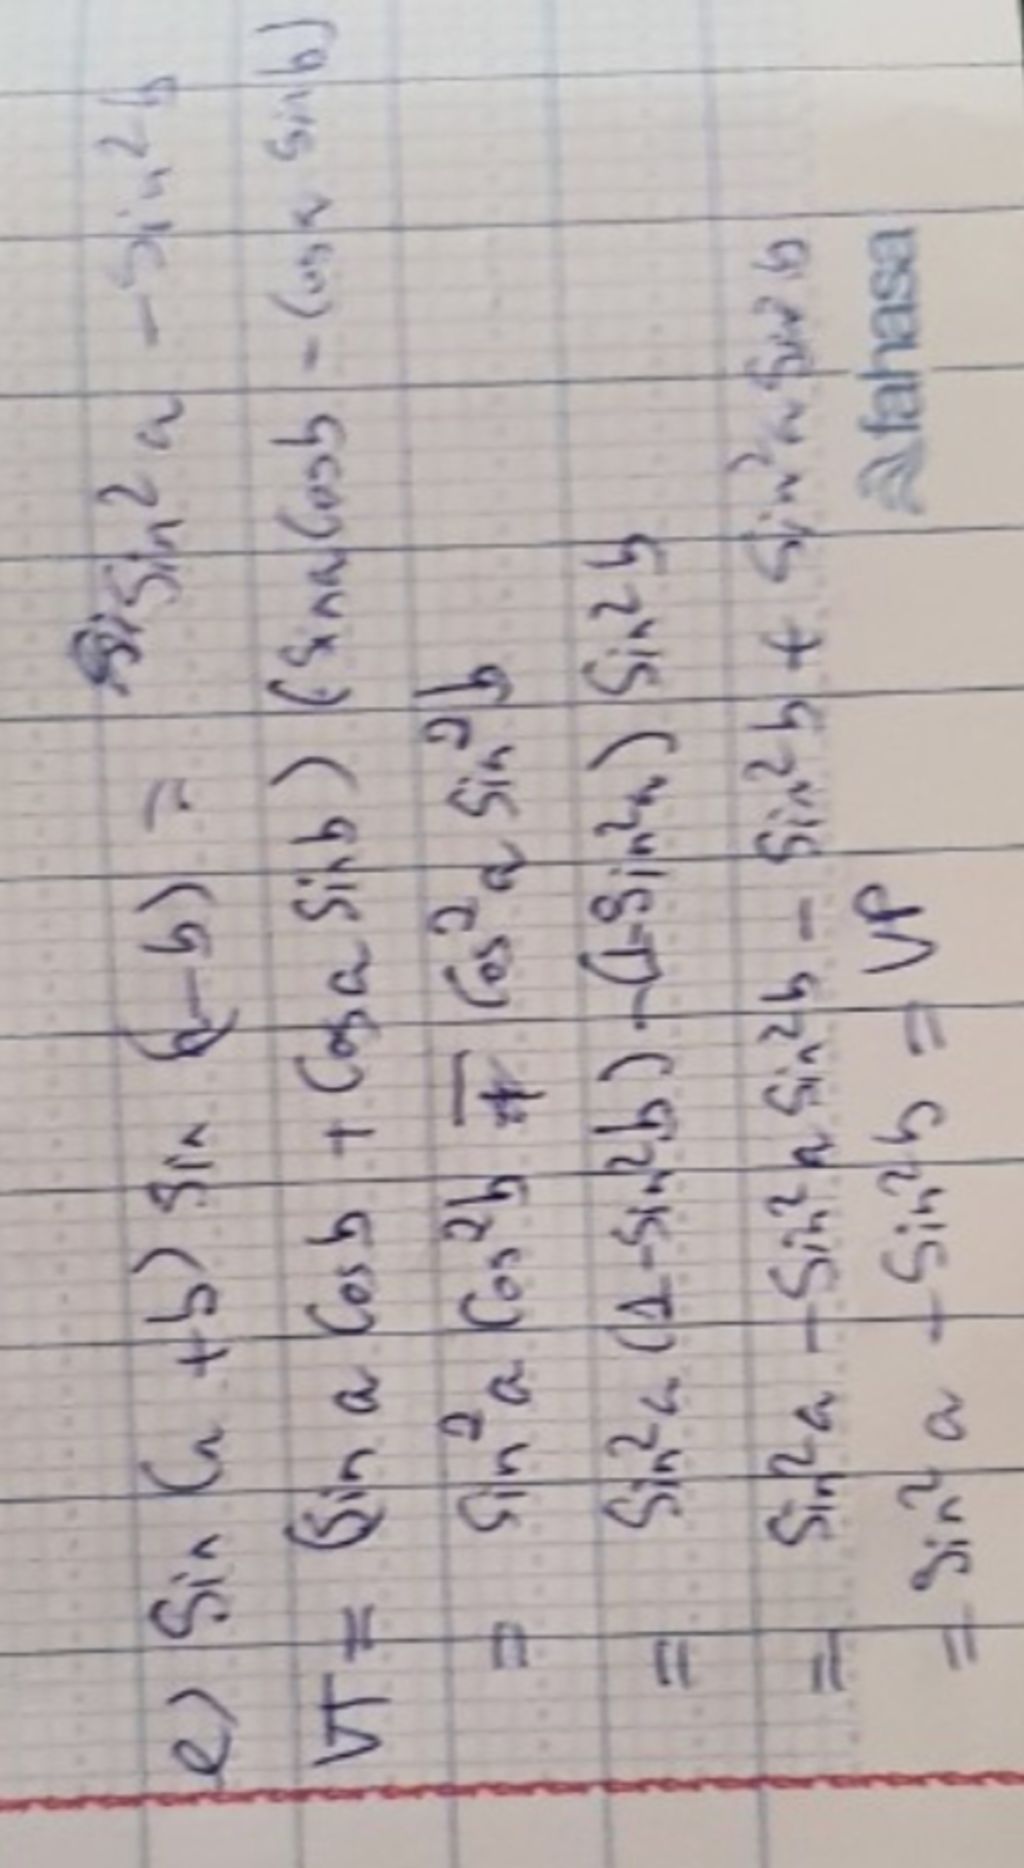 e) Sin (a + b) sin (a - b) = Sin²a - Sin²b
VT = (Sin a Cos b + Cos a Sin b) (Sina Cos b - Cos a Sin b)
= Sin²a Cos²b - Cos²a Sin²b
= Sin²a (1 - Sin²b) - (1 - Sin²a) Sin²b
= Sin²a - Sin²a Sin²b - Sin²b + Sin²a Sin²b
= Sin²a - Sin²b = VP
fahasa